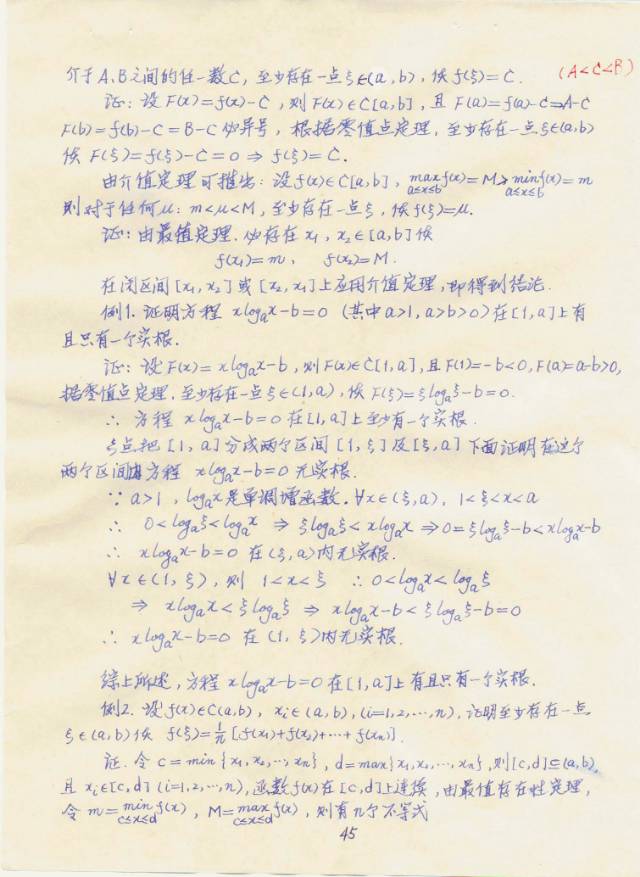 介于A、B之间的任一数C, 至少存在一点ξ∈(a, b), 使 f(ξ)=C. (A<C<B)
证: 设 F(x)=f(x)-C, 则 F(x)∈C[a, b], 且 F(a)=f(a)-C=A-C
F(b)=f(b)-C=B-C 必异号, 根据零值点定理, 至少存在一点ξ∈(a,b)
使 F(ξ)=f(ξ)-C=0 ⇒ f(ξ)=C.
由介值定理可推出: 设f(x)∈C[a,b], max f(x)=M, min f(x)=m
a≤x≤b a≤x≤b
则对于任何μ: m<μ<M, 至少存在一点ξ, 使f(ξ)=μ.
证: 由最值定理. 必存在 x₁, x₂∈[a,b]使
f(x₁)=m, f(x₂)=M.
在闭区间[x₁, x₂]或[x₂, x₁]上应用介值定理, 即得到结论.
例1. 证明方程 xlogₐx-b=0 (其中a>1, a>b>0)在[1,a]上有
且只有一个实根.
证: 设F(x)=xlogₐx-b, 则F(x)∈C[1,a], 且F(1)=-b<0, F(a)=a-b>0,
据零值点定理. 至少存在一点ξ∈(1,a), 使F(ξ)=ξlogₐξ-b=0.
∴ 方程 xlogₐx-b=0在[1,a]上至少有一个实根.
ξ点把[1,a]分成两个区间[1,ξ]及[ξ,a]下面证明在这个
两个区间内方程 xlogₐx-b=0无实根.
∵ a>1, logₐx是单调增函数. ∀x∈(ξ,a), 1<ξ<x<a
∴ 0<logₐξ<logₐx ⇒ ξlogₐξ<xlogₐx ⇒ 0=ξlogₐξ-b<xlogₐx-b
∴ xlogₐx-b=0 在(ξ,a)内无实根.
∀x∈(1,ξ), 则 1<x<ξ ∴ 0<logₐx<logₐξ
⇒ xlogₐx<ξlogₐξ ⇒ xlogₐx-b<ξlogₐξ-b=0
∴ xlogₐx-b=0 在(1,ξ)内无实根.
综上所述, 方程 xlogₐx-b=0在[1,a]上有且只有一个实根.
例2. 设f(x)∈C(a,b), xᵢ∈(a,b), (i=1,2,…,n), 证明至少存在一点
ξ∈(a,b)使 f(ξ)=1/n[f(x₁)+f(x₂)+…+f(xₙ)].
证. 令 c=min{x₁,x₂,…,xₙ}, d=max{x₁,x₂,…,xₙ}, 则[c,d]⊆(a,b),
且 xᵢ∈[c,d] (i=1,2,…,n), 函数f(x)在[c,d]上连续, 由最值存在性定理,
令 m=min f(x), M=max f(x), 则有n个不等式
c≤x≤d c≤x≤d
45